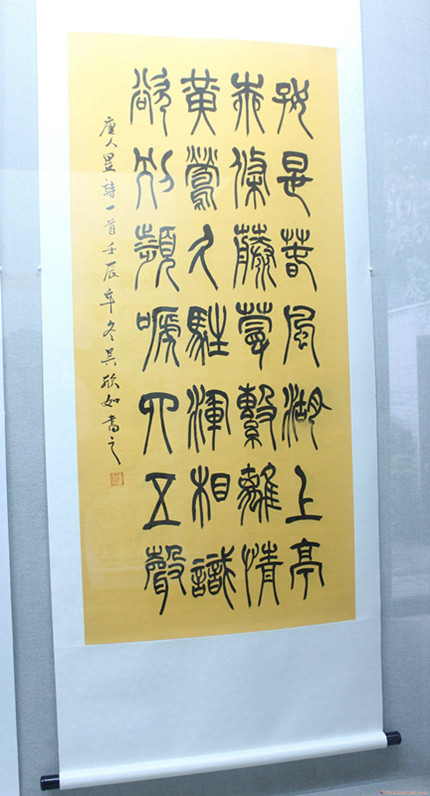 好是春風湖上亭
柳條藤蔓繫離情
黃鶯久駐渾相識
欲別頻嗁四五聲
唐人昱詩一首壬辰年冬吴欣如書之